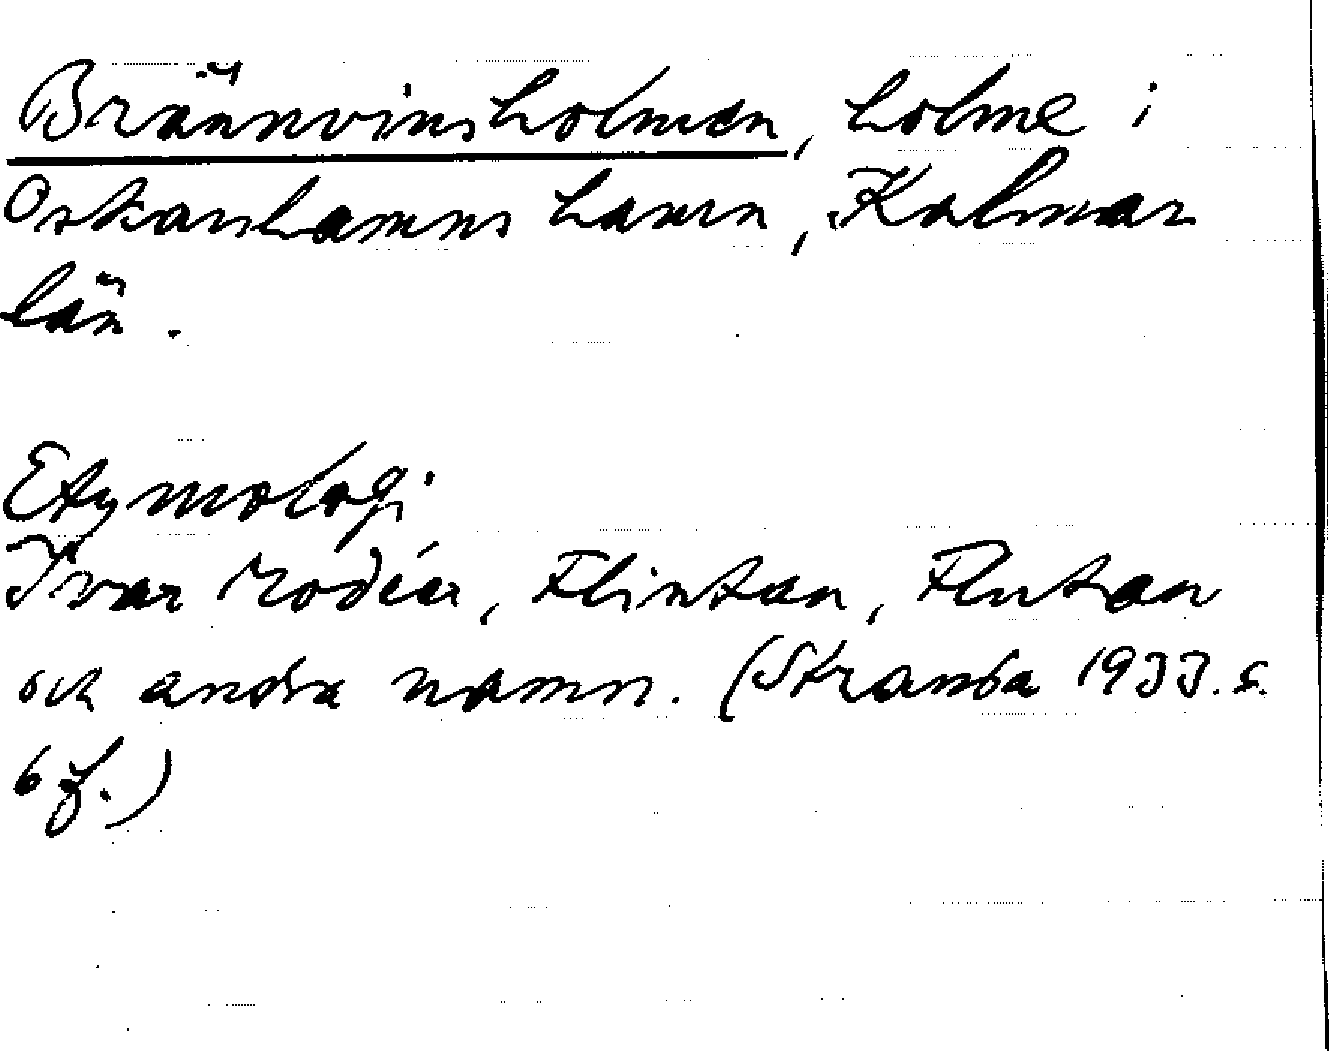 Brännvinsholmen, holme i
Oskarshamns hamn, Kalmar
län.
Etymologi
Ivar Modéer, Flintan, Flutan
och andra namn. (Stranda 1933. s.
6 f.)